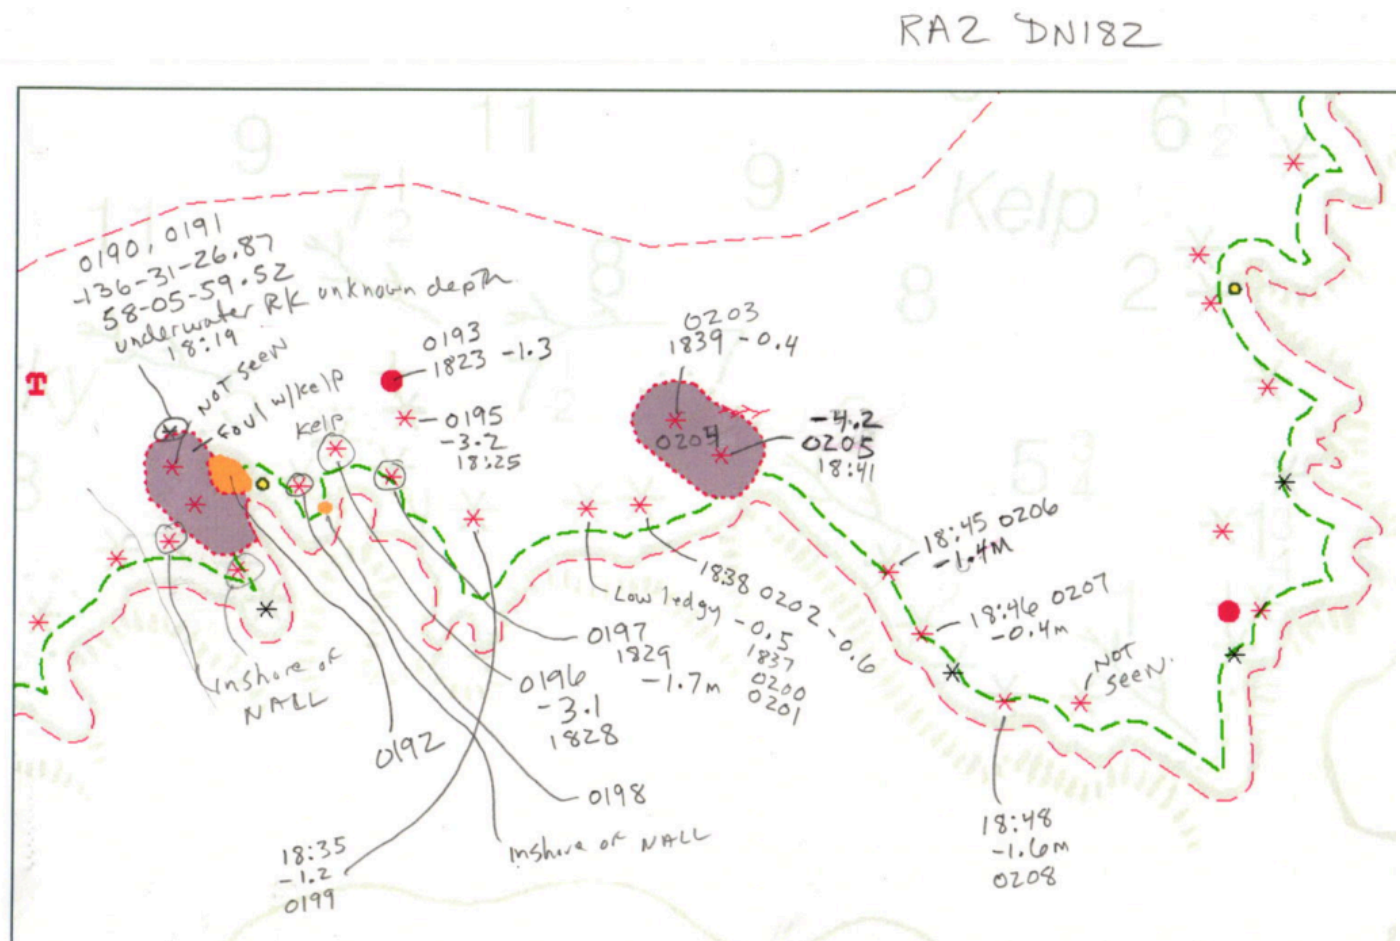 RA2 DN182
9
11
6 1/2
11
7 1/2
9
Kelp
8
8
2
0190, 0191
-136-31-26.87
58-05-59.52
underwater RK unknown depth
18:19
NOT SEEN
Foul w/Kelp
Kelp
0193
1823 -1.3
0195
-3.2
18:25
7 1/2
0203
1839 -0.4
0204
-4.2
0205
18:41
T
3
5 3/4
18:45 0206
-1.4M
18:46 0207
-0.4m
NOT
SEEN.
1
Low ledgy -0.5
1837
0200
0201
1838 0202 -0.6
0197
1829
-1.7m
0196
-3.1
1828
inshore of
NALL
0192
0198
inshore of NALL
18:35
-1.2
0199
18:48
-1.6m
0208